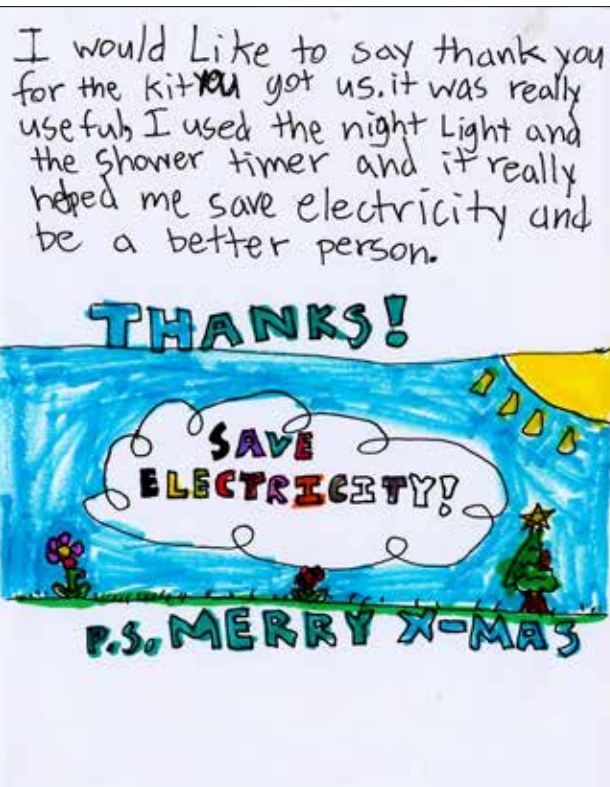 I would Like to say thank you
for the kit you got us. it was really
useful, I used the night Light and
the shower timer and it really
helped me save electricity and
be a better person.
THANKS!
SAVE
ELECTRICITY!
P.S. MERRY X-MAS